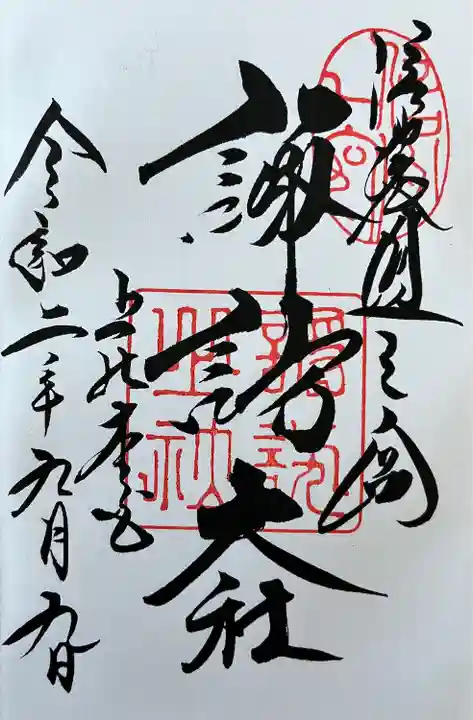 信濃國一之宮
諏訪大社
上社本宮
令和二年九月九日